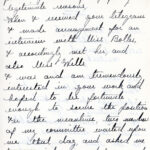 legitimate reasons.
When I received your telegram
I made arrangement for an
interview with Miss
& accordingly met her and
also Miss Wells
I was and am tremendously
interested in your work and
hoped to be
enough to secure the position
in the meanwhile two
of my committee waited upon
me that day and asked me